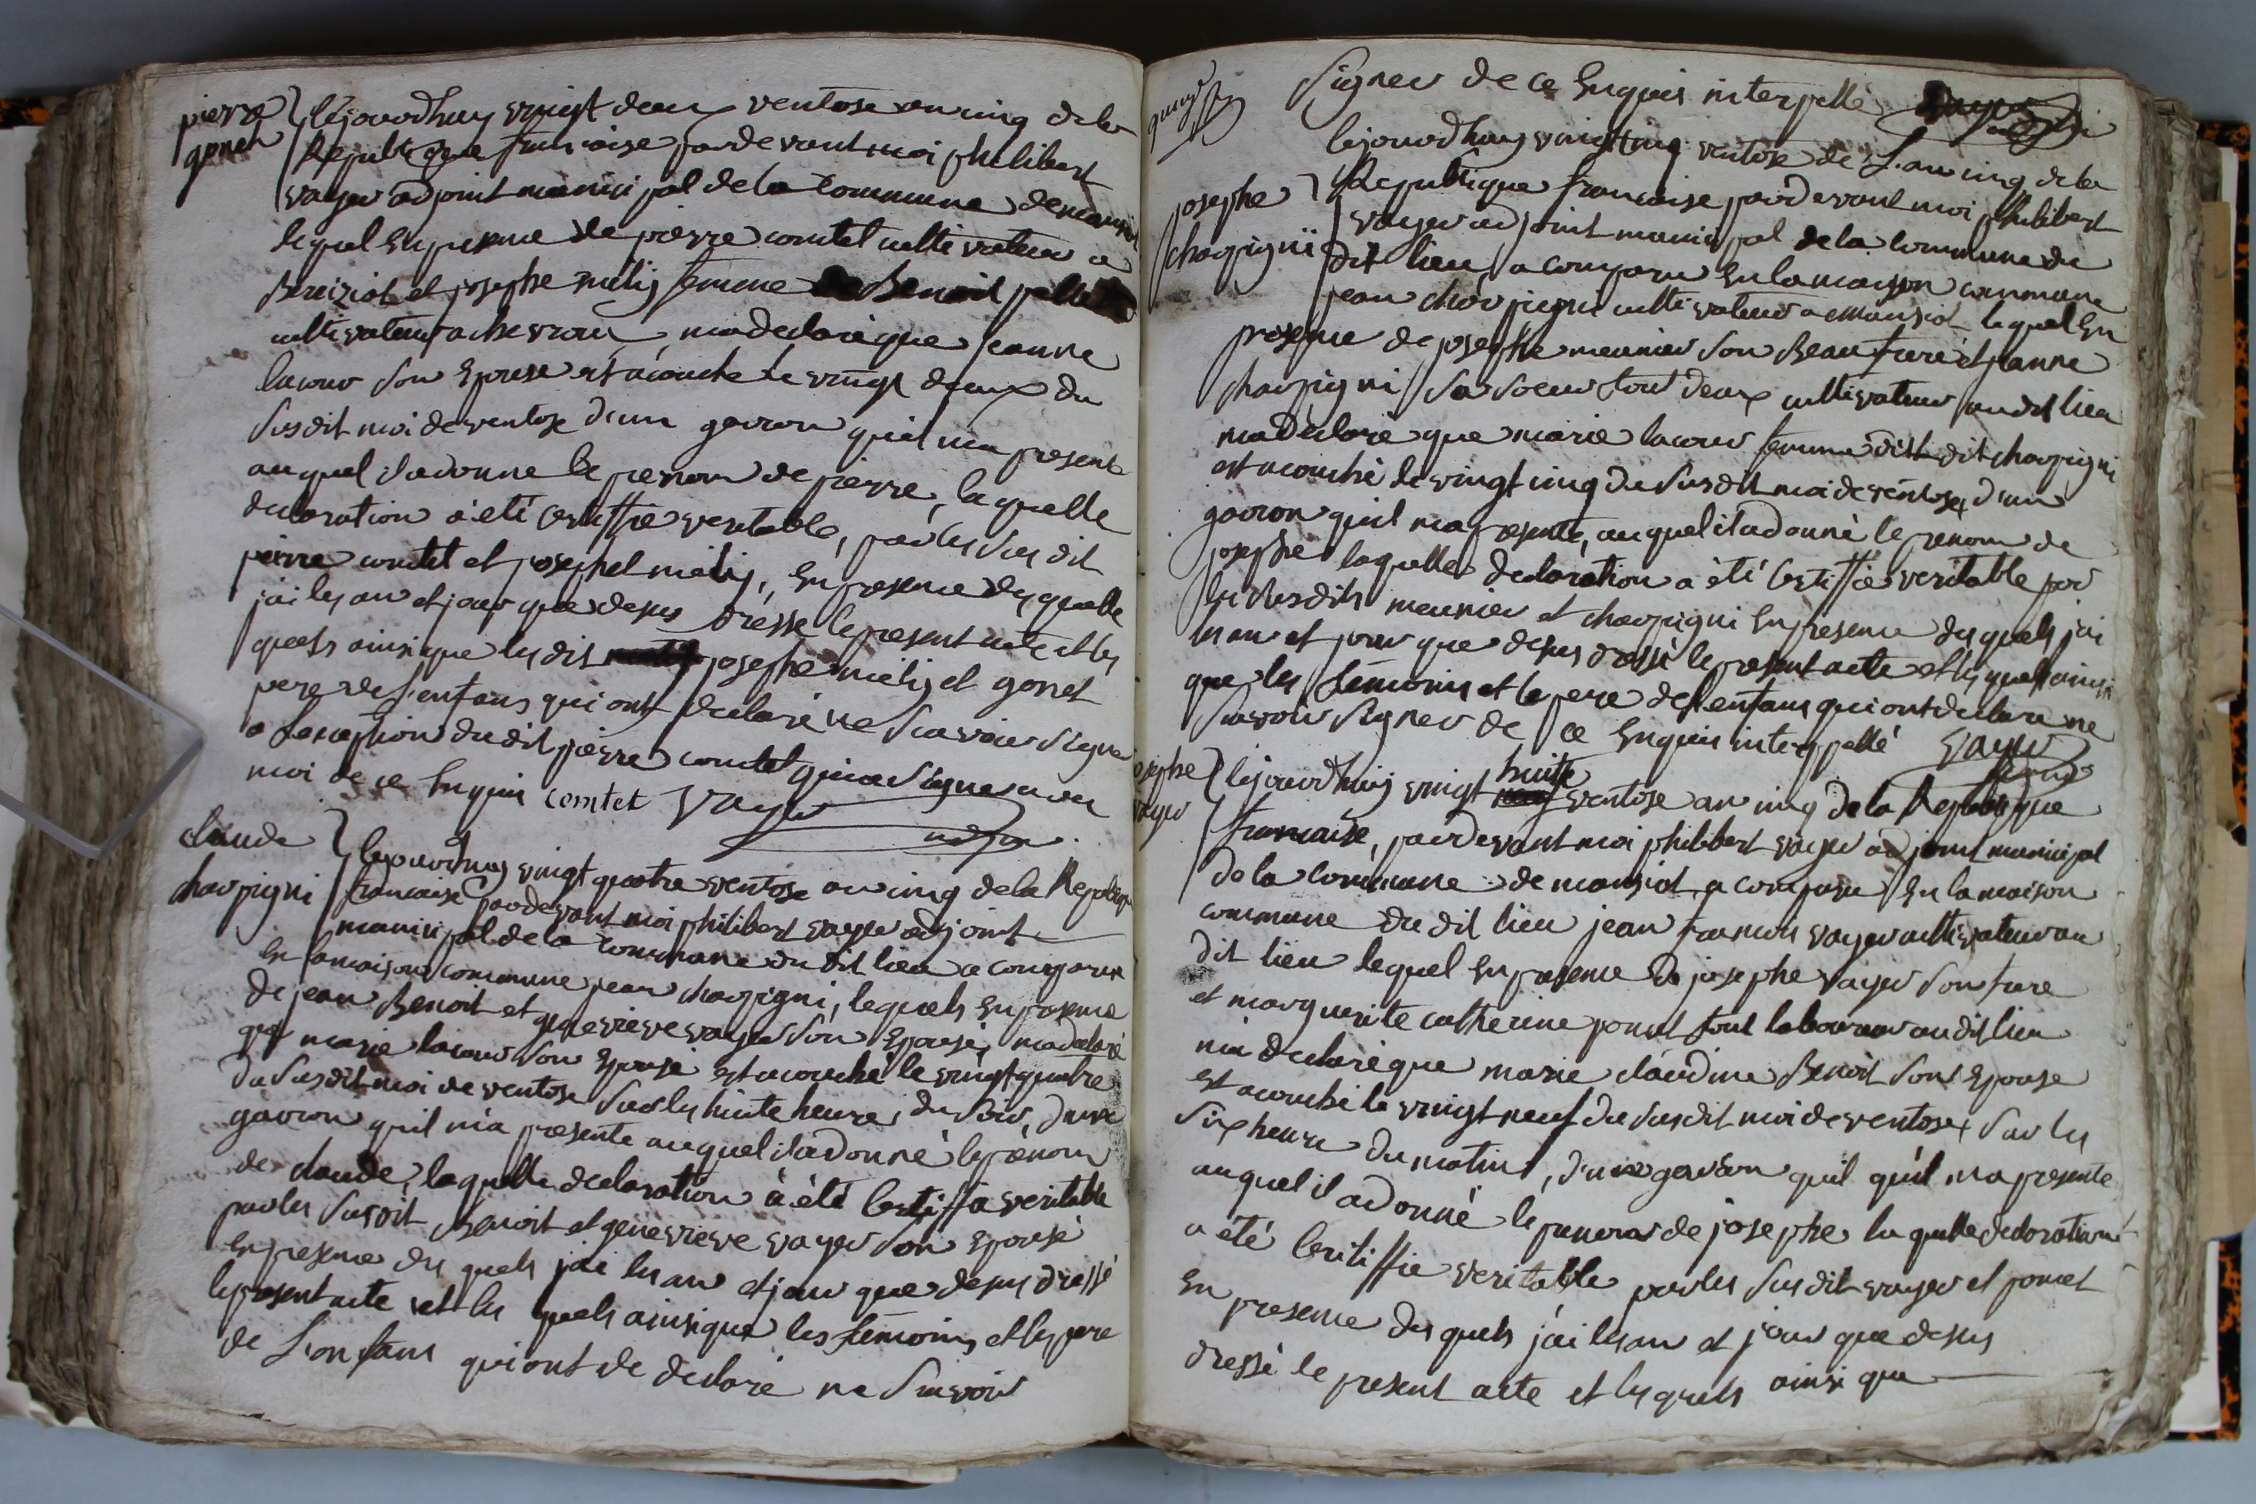 pierre
gonet
Cejourdhuy vingt deux ventose an cinq de la
Republique francoise pardevant moi philibert
vayer adjoint municipal de la commune de mansiot
lequel en presence de pierre comtet cultivateur a
et josephe mieli femme Benoit
cultivateur a chevrou, ma declaré que jeanne
lacour son Epouse est acouche le vingt deux du
susdit moi de ventose d'un garcon quil ma presenté
auquel il a donne le prenom de pierre, laquelle
declaration a été certiffié veritable, par les sus dit
pierre comtet et josephet mieli, en presence des quelle
jai les an et jour que desus dressé le present acte et les
quels ainsi que les dit josephe mieli et gonet
pere de l'enfans qui ont declaré ne scavoir signe
a l'exception du dit pierre comtet qui a signe avec
moi de ce Enquis comtet vayer
adjoint
claude
charpigni
Cejourdhuy vingt quatre ventose an cinq de la Republique
francaise pardevant moi philibert vayer adjoint
municipal de la commune du dit lieu a comparu
en la maison commune jean charpigni, lequels en presence
de jean Benoit et genevieve vayer son Epouse, ma declaré
que marie lacour son Epouse est acouché le vingt quatre
du susdit moi de ventose sur les huite heure du soir, d'un
garcon quil m'a presente auquel il a donné le prenom
de claude, laquelle declaration à été certiffia veritable
par les susdit Benoit et genevieve vayer son Epouse
en presence des quels jai les an et jour que desus dressé
le present acte et les quels ainsi que les témoins et le pere
de L'enfans qui ont de declaré ne scavoir
signer de ce Enquis interpellé vayer
josephe
charpigni
Cejourdhuy vingt cinq ventose de L'an cinq de la
Republique francaise pardevant moi philibert
vayer adjoint municipal de la commune du
dit lieu, a comparu en la maison commune
jean charpigni cultivateur a mansiot lequel en
presence de josephe meunier son Beau frere et jeanne
charpigni sa soeur tout deux cultivateur audit lieu
ma declaré que marie lacour femme dit charpigni
est acouché le vingt cinq du susdit moi de ventose d'un
garcon quil ma presenté, auquel il a donné le prenom de
josephe laquelle declaration a été certiffié veritable par
les susdits meunier et charpigni en presence des quels jai
les an et jour que desus dressé le present acte et les quels ainsi
que les témoins et le pere de l'enfans qui ont declaré ne
scavoir signer de ce Enquis interppellé vayer
josephe
vayer
Cejourdhuy vingt huite ventose an cinq de la Republique
francaise, pardevant moi philibert vayer adjoint municipal
de la commune de mansiot, a comparu en la maison
commune du dit lieu jean francois vayer cultivateur au
dit lieu lequel en presence de josephe vayer son frere
et marguerite catherine poncet tout laboureur audit lieu
m'a declaré que marie claudine Benoit son Epouse
est acouché le vingt neuf du susdit moi de ventose, sur les
six heure du matin, d'une garcon quil quil ma presente
auquel il a donné le prenom de josephe la quelle declaration
a été certiffie veritable par les susdit vayer et poncet
en presence des quels j'ai les an et jour que desus
dressé le present acte et les quels ainsi que